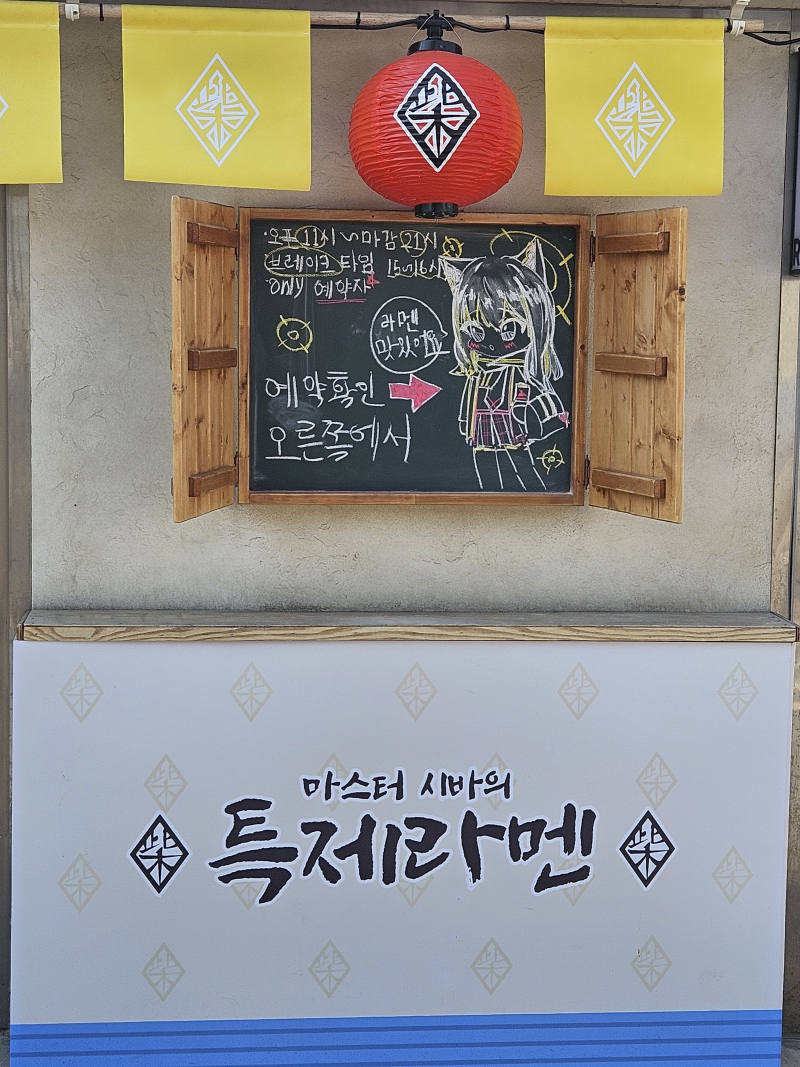 柴
·오픈 11시~마감 21시
브레이크 타임 15~16시
only 예약자
라멘
맛있어요
예약확인
오른쪽에서
마스터 시바의
柴 특제라멘 柴